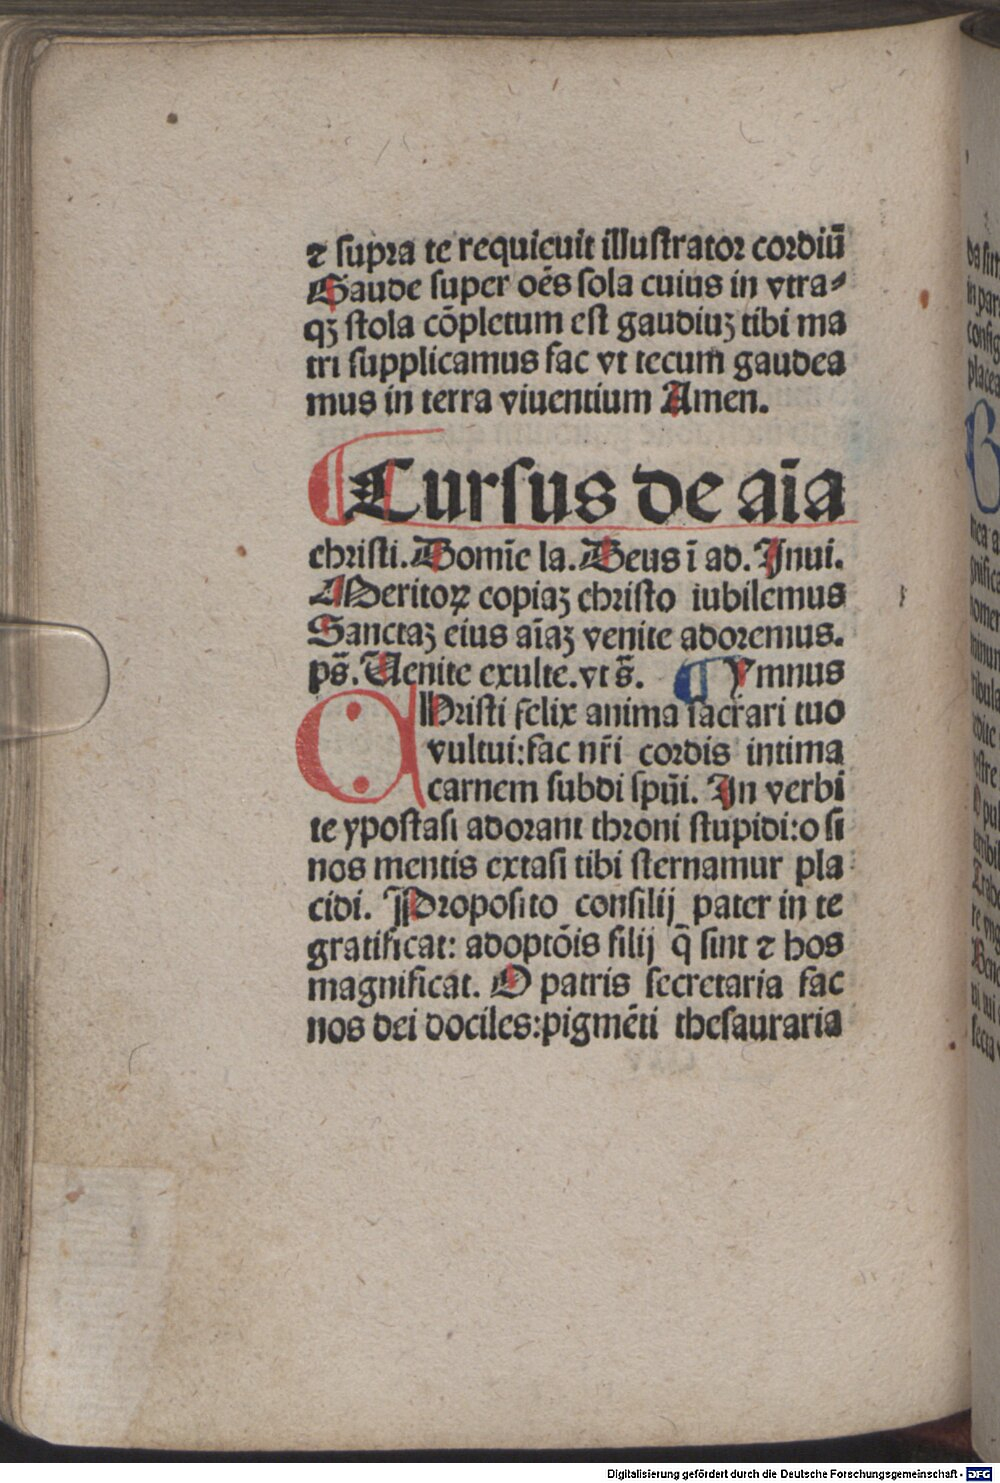 ⁊ supra te requieuit illustrator cordiū
Gaude super oēs sola cuius in vtra⸗
qꝫ stola cōpletum est gaudiuꝫ tibi ma
tri supplicamus fac vt tecum gaudea
mus in terra viuentium Amen.
Cursus de aīa
christi. Domīe la. Deus ī ad. Inui.
Meritoꝝ copiaꝫ christo iubilemus
Sanctaꝫ eius aīaꝫ venite adoremus.
ps̄. Uenite exulte. vt s̄. ¶ Ymnus
CHristi felix anima sacrari tuo
vultui: fac nr̄i cordis intima
carnem subdi spūi. In verbi
te ypostasi adorant throni stupidi: o si
nos mentis extasi tibi sternamur pla
cidi. Proposito consilij pater in te
gratificat: adoptōis filij q̄ sint ⁊ hos
magnificat. O patris secretaria fac
nos dei dociles: pigmēti thesauraria
Digitalisierung gefördert durch die Deutsche Forschungsgemeinschaft - DFG